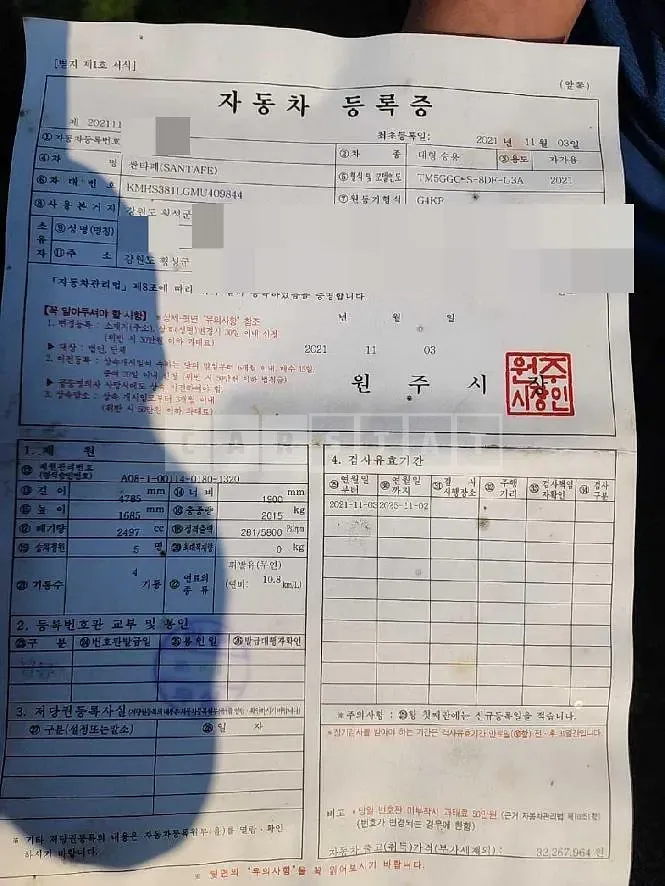 [별지 제1호 서식]
(앞쪽)
자동차 등록증
제 202111
최초등록일: 2021 년 11 월 03일
① 자동차등록번호 ② 차 종 대형 승용 ③ 용도 자가용
④ 차 명 싼타페(SANTAFE) ⑤ 형식 및 모델연도 2021
⑥ 차 대 번 호 KMHS381LGMU409844 ⑦ 원동기형식 G4KP
⑧ 사용본거지 강원도 횡성군
소유자 ⑨ 성명(명칭)
⑪ 주 소 강원도 횡성군
「자동차관리법」제8조에 따라
년 월 일
[꼭 알아두셔야 할 사항] ※ 상세:뒷면 '유의사항' 참조
1. 변경등록 :
▶ 대상: 법인, 단체
2021 11 03
2. 이전등록 :
3. 상속말소 :
원 주 시 장
원주시장인
CARSTAT
1. 제 원
⑫ 제원관리번호 (형식승인번호) A08-1-00114-0180-1320
⑬ 길 이 4785 mm ⑭ 너 비 1900 mm
⑮ 높 이 1685 mm ⑯ 총중량 2015 kg
⑰ 배기량 2497 cc ⑱ 정격출력 281/5800 Ps/rpm
⑲ 승차정원 5 명 ⑳ 최대적재량 0 kg
㉑ 기통수 4 기통 ㉒ 연료의 종류 휘발유(무연) (연비: 10.8 km/L)
2. 등록번호판 교부 및 봉인
㉓ 구 분 ㉔ 번호판발급일 ㉕ 봉인일 ㉖ 발급대행자확인
3. 저당권등록사실
㉗ 구분(설정또는말소) ㉘ 일 자
※ 기타 저당권등록의 내용은 자동차등록원부(을)를 열람·확인
하시기 바랍니다.
4. 검사유효기간
㉙ 연월일 부터 ㉚ 연월일 까지 ㉛ 검 사 시행장소 ㉜ 주행 거리 ㉝ 검사책임 자확인 ㉞ 검사 구분
2021-11-03 2025-11-02
※주의사항 : ㉙항 첫째란에는 신규등록일을 적습니다.
비고 * 앞달 번호판 미부착시 과태료 50만원
(번호가 변경되는 경우에 한함)
자동차 출고(취득)가격(부가세제외): 32,267,964 원
※ 뒷면의 '유의사항'을 꼭 읽어보시기 바랍니다.